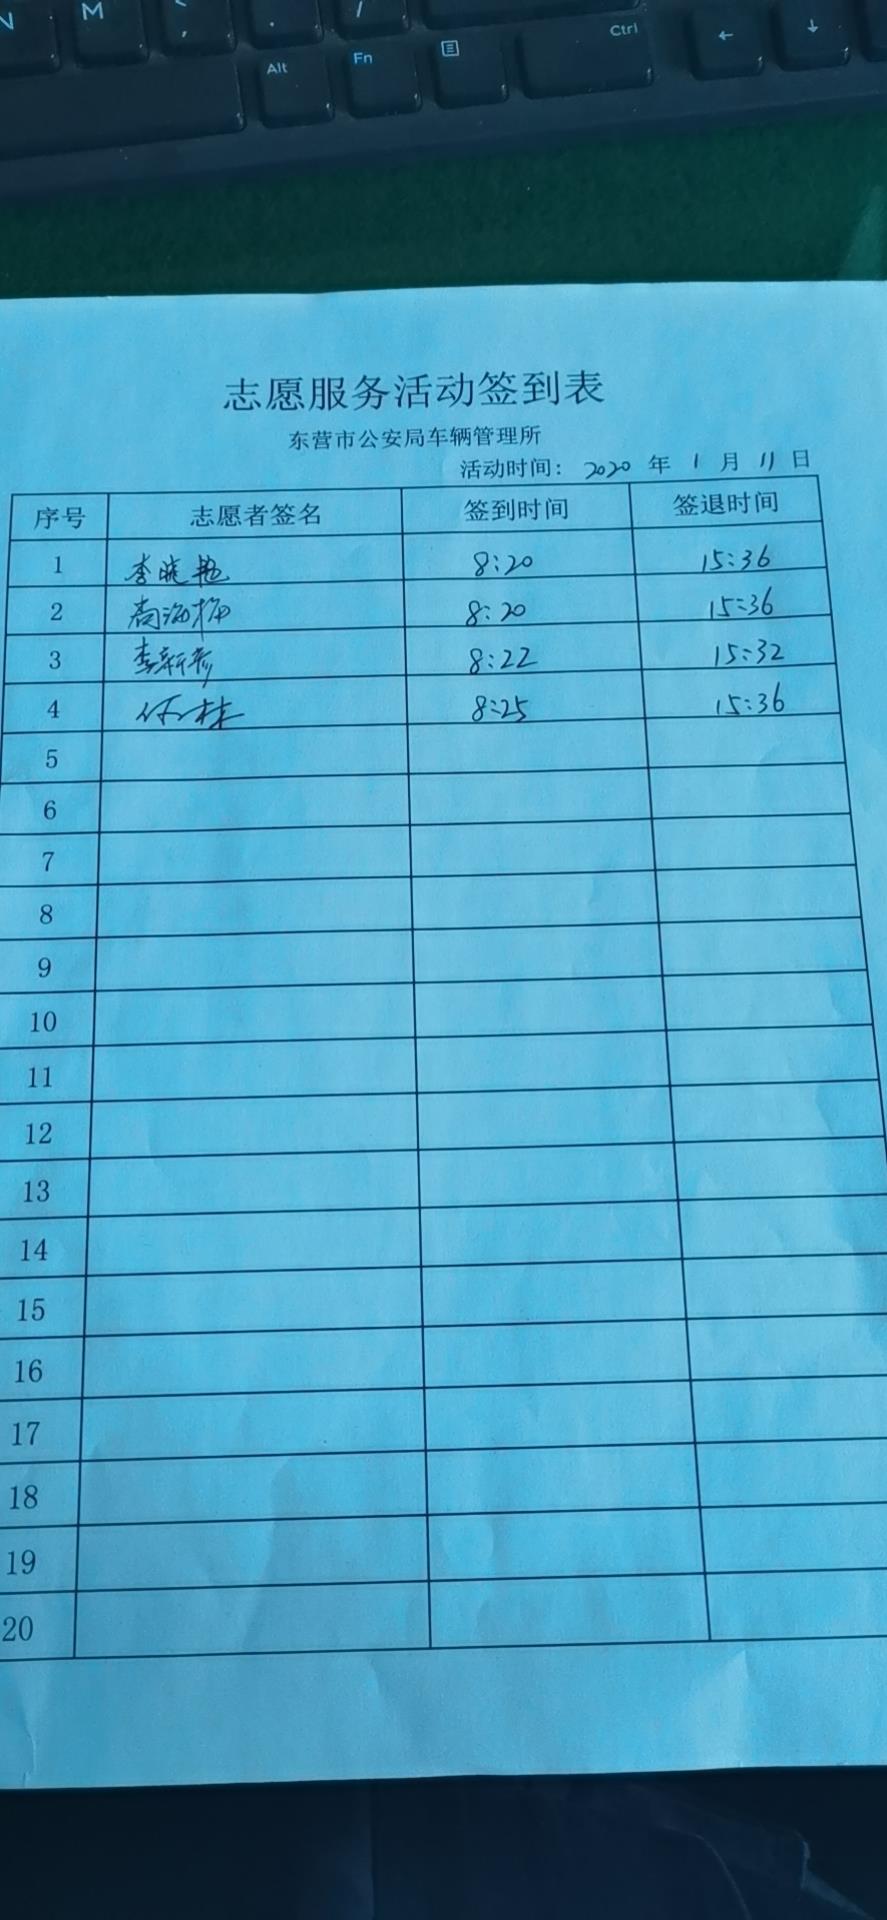 N M < , . /
Alt Fn Ctrl ← ↓
志愿服务活动签到表
东营市公安局车辆管理所
活动时间: 2020 年 1 月 11 日
序号 志愿者签名 签到时间 签退时间
1 李晓艳 8:20 15:36
2 8:20 15:36
3 李新 8:22 15:32
4 8:25 15:36
5
6
7
8
9
10
11
12
13
14
15
16
17
18
19
20